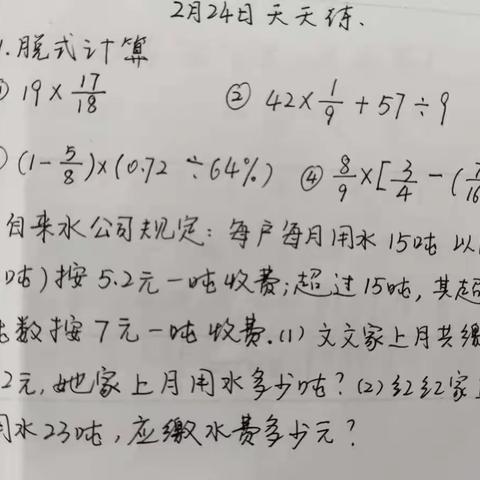 2月24日天天练.
1.脱式计算
19×17/18 ② 42×1/9+57÷9
(1-5/8)×(0.72÷64%) ④ 8/9×[3/4-(
自来水公司规定：每户每月用水15吨以
吨)按5.2元一吨收费;超过15吨,其超
数按7元一吨收费.(1)文文家上月共缴
2元,她家上月用水多少吨?(2)红红家
用水23吨,应缴水费多少元?